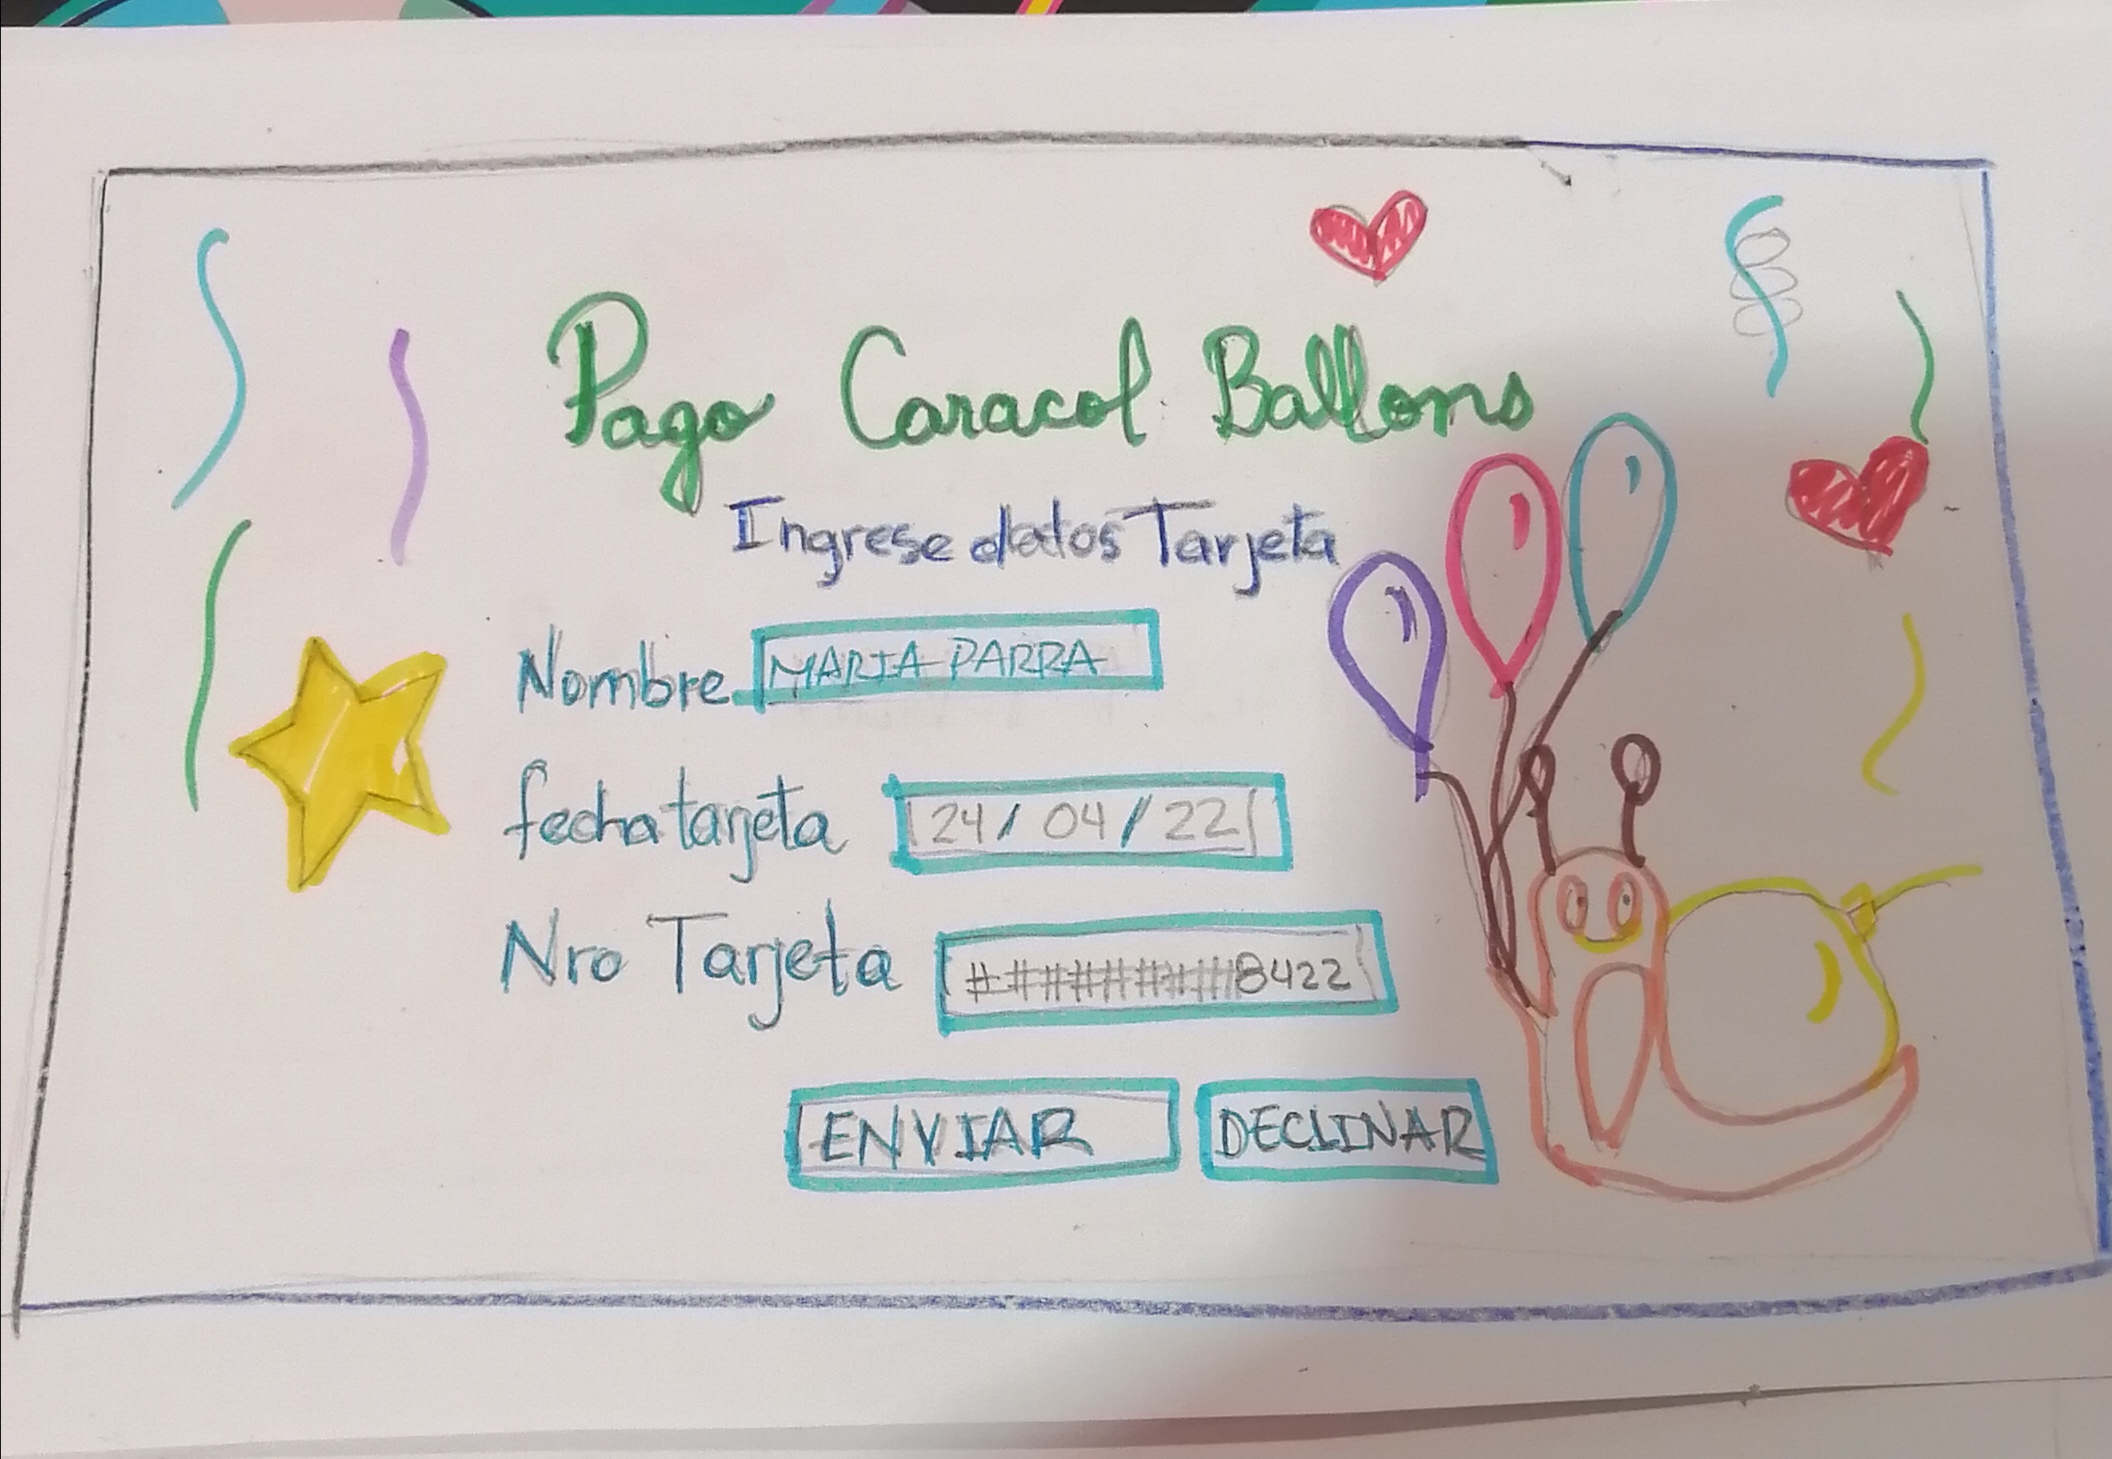 Pago Caracol Ballons
Ingrese datos Tarjeta
Nombre MARIA PARRA
fecha tarjeta 24/04/22
Nro Tarjeta #########8422
ENVIAR DECLINAR